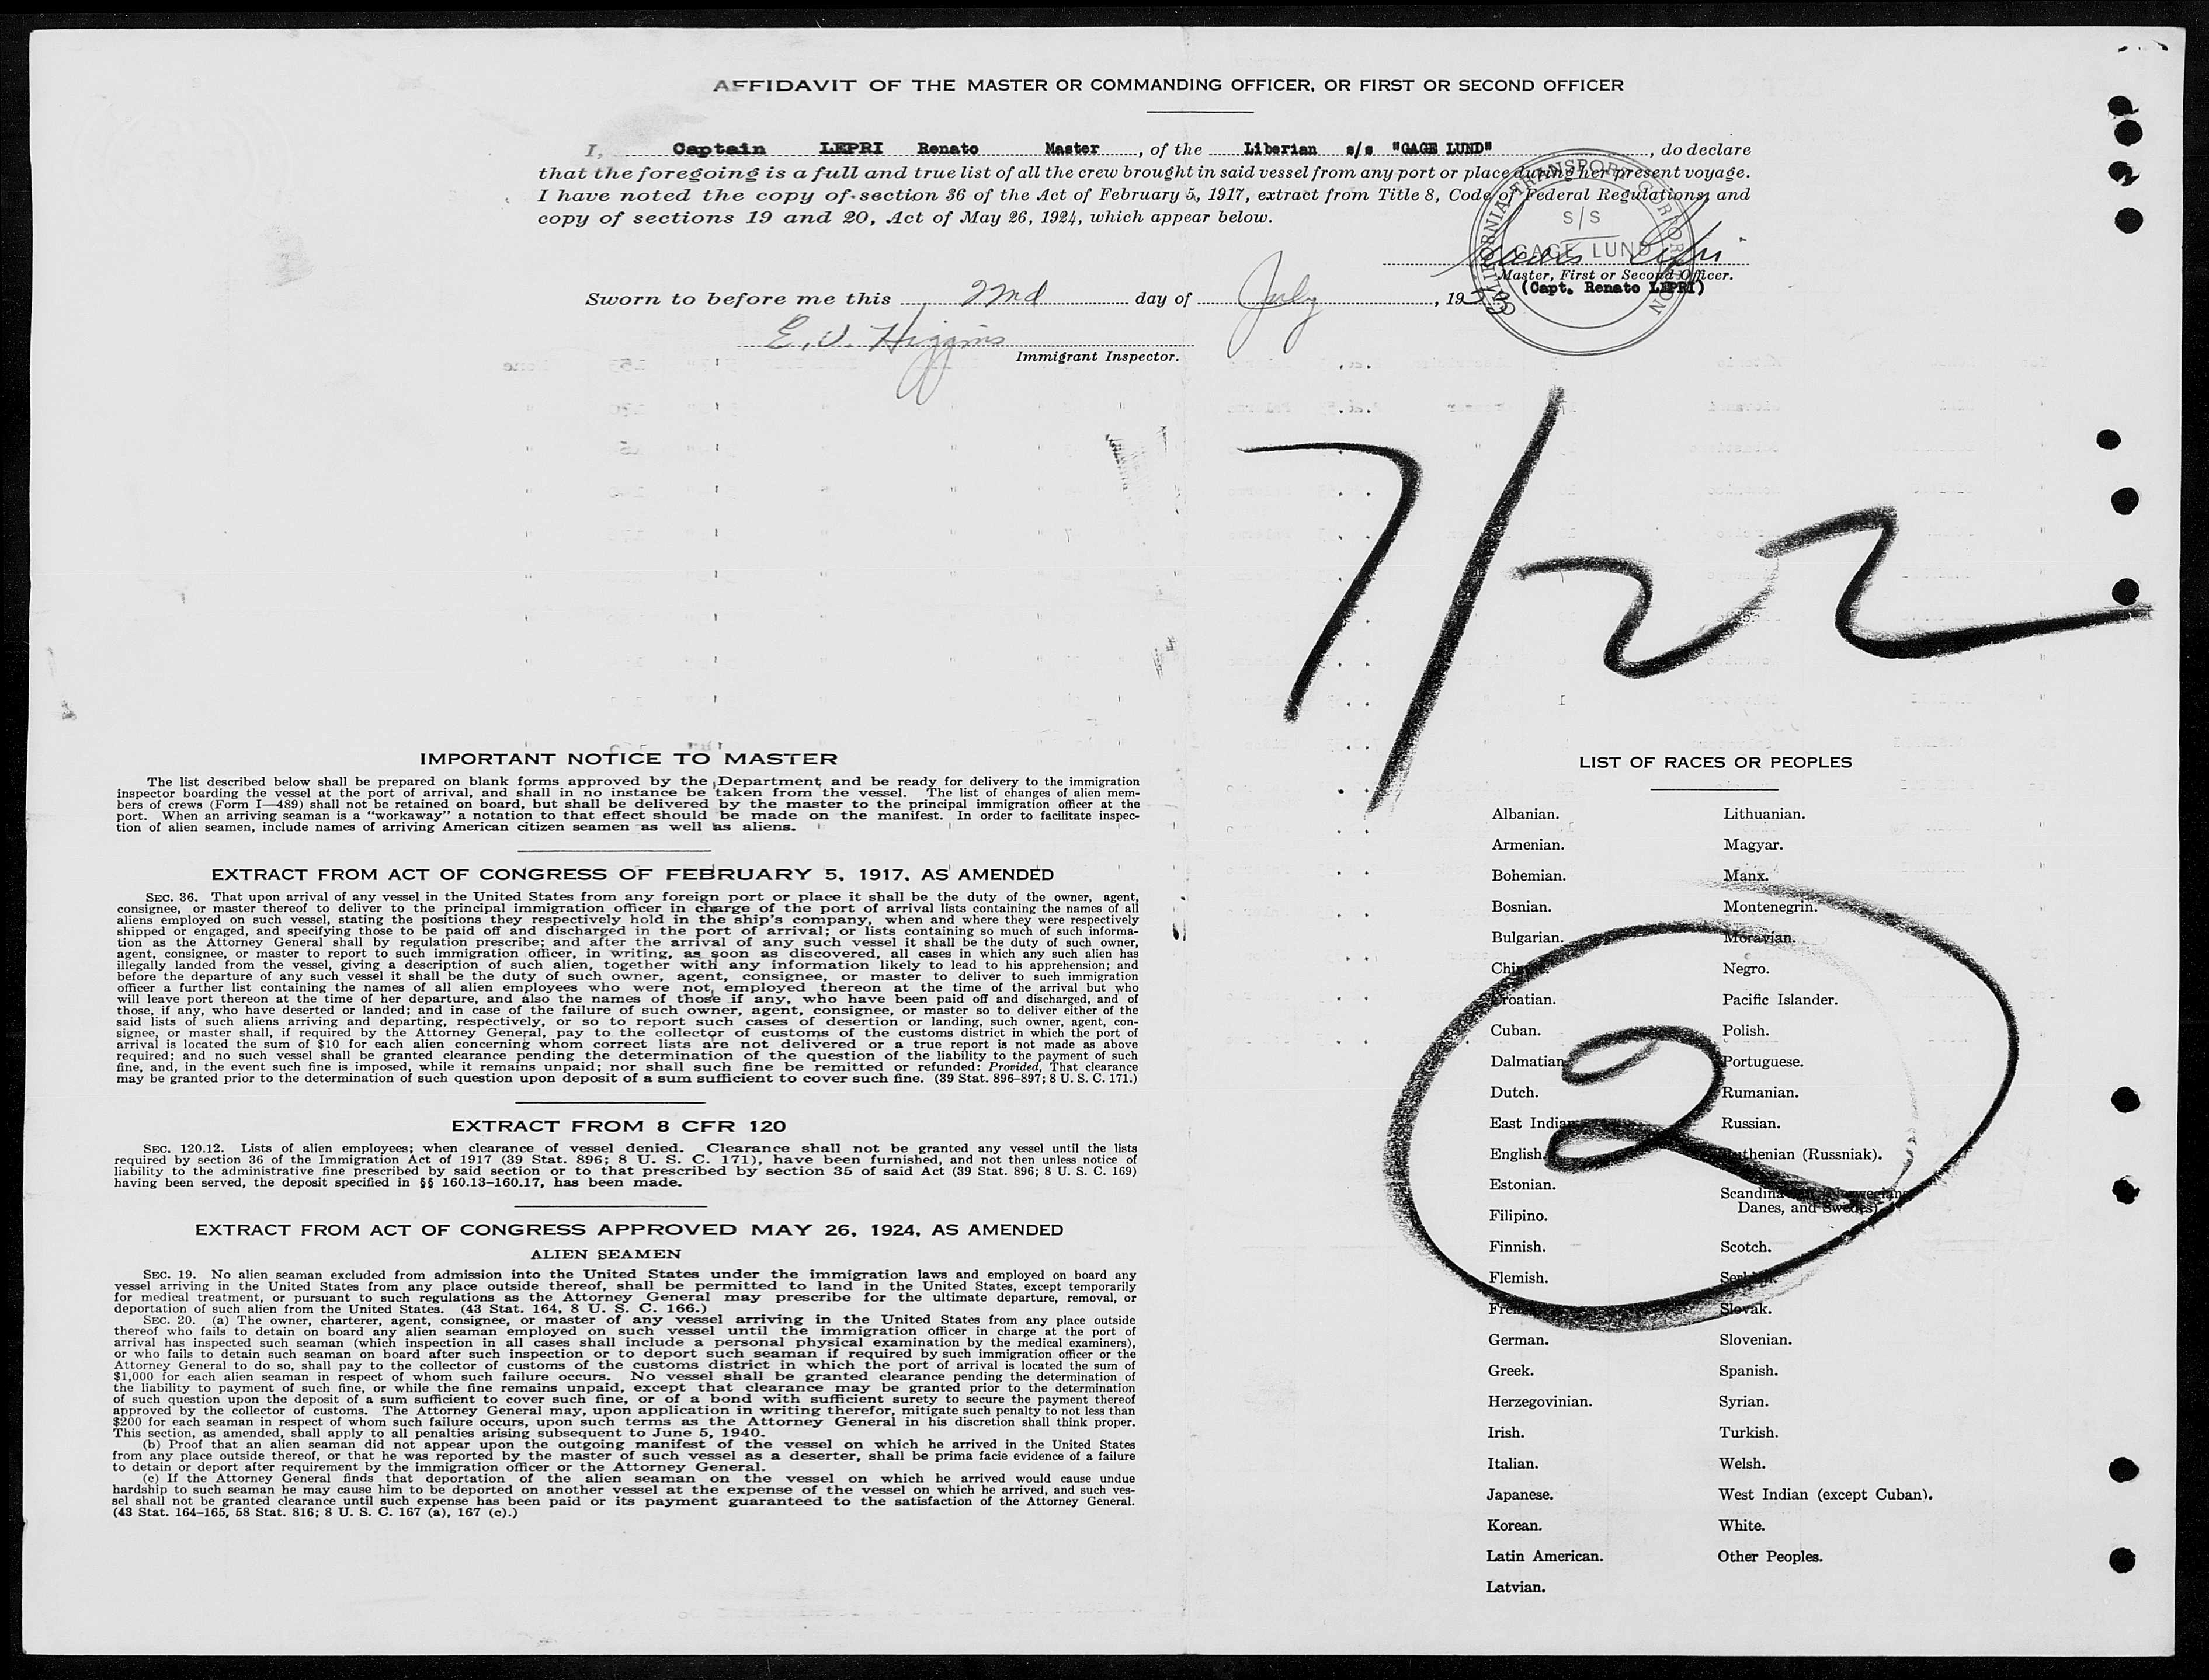 AFFIDAVIT OF THE MASTER OR COMMANDING OFFICER, OR FIRST OR SECOND OFFICER
I, Captain LEPRI Renato Master, of the Liberian s/s "GAGE LUND", do declare
that the foregoing is a full and true list of all the crew brought in said vessel from any port or place during her present voyage.
I have noted the copy of section 36 of the Act of February 5, 1917, extract from Title 8, Code of Federal Regulations, and
copy of sections 19 and 20, Act of May 26, 1924, which appear below.
CALIFORNIA TRANSPORT CORPORATION
S/S
GAGE LUND
Master, First or Second Officer.
(Capt. Renato LEPRI)
Sworn to before me this 22nd day of July, 19
E. V. Higgins
Immigrant Inspector.
7/22
IMPORTANT NOTICE TO MASTER
The list described below shall be prepared on blank forms approved by the Department and be ready for delivery to the immigration
inspector boarding the vessel at the port of arrival, and shall in no instance be taken from the vessel. The list of changes of alien mem-
bers of crews (Form I—489) shall not be retained on board, but shall be delivered by the master to the principal immigration officer at the
port. When an arriving seaman is a "workaway" a notation to that effect should be made on the manifest. In order to facilitate inspec-
tion of alien seamen, include names of arriving American citizen seamen as well as aliens.
EXTRACT FROM ACT OF CONGRESS OF FEBRUARY 5, 1917, AS AMENDED
SEC. 36. That upon arrival of any vessel in the United States from any foreign port or place it shall be the duty of the owner, agent,
consignee, or master thereof to deliver to the principal immigration officer in charge of the port of arrival lists containing the names of all
aliens employed on such vessel, stating the positions they respectively hold in the ship's company, when and where they were respectively
shipped or engaged, and specifying those to be paid off and discharged in the port of arrival; or lists containing so much of such informa-
tion as the Attorney General shall by regulation prescribe; and after the arrival of any such vessel it shall be the duty of such owner,
agent, consignee, or master to report to such immigration officer, in writing, as soon as discovered, all cases in which any such alien has
illegally landed from the vessel, giving a description of such alien, together with any information likely to lead to his apprehension; and
before the departure of any such vessel it shall be the duty of such owner, agent, consignee, or master to deliver to such immigration
officer a further list containing the names of all alien employees who were not employed thereon at the time of the arrival but who
will leave port thereon at the time of her departure, and also the names of those if any, who have been paid off and discharged, and of
those, if any, who have deserted or landed; and in case of the failure of such owner, agent, consignee, or master so to deliver either of the
said lists of such aliens arriving and departing, respectively, or so to report such cases of desertion or landing, such owner, agent, con-
signee, or master shall, if required by the Attorney General, pay to the collector of customs of the customs district in which the port of
arrival is located the sum of $10 for each alien concerning whom correct lists are not delivered or a true report is not made as above
required; and no such vessel shall be granted clearance pending the determination of the question of the liability to the payment of such
fine, and, in the event such fine is imposed, while it remains unpaid; nor shall such fine be remitted or refunded: Provided, That clearance
may be granted prior to the determination of such question upon deposit of a sum sufficient to cover such fine. (39 Stat. 896–897; 8 U. S. C. 171.)
EXTRACT FROM 8 CFR 120
SEC. 120.12. Lists of alien employees; when clearance of vessel denied. Clearance shall not be granted any vessel until the lists
required by section 36 of the Immigration Act of 1917 (39 Stat. 896; 8 U. S. C. 171), have been furnished, and not then unless notice of
liability to the administrative fine prescribed by said section or to that prescribed by section 35 of said Act (39 Stat. 896; 8 U. S. C. 169)
having been served, the deposit specified in §§ 160.13–160.17, has been made.
EXTRACT FROM ACT OF CONGRESS APPROVED MAY 26, 1924, AS AMENDED
ALIEN SEAMEN
SEC. 19. No alien seaman excluded from admission into the United States under the immigration laws and employed on board any
vessel arriving in the United States from any place outside thereof, shall be permitted to land in the United States, except temporarily
for medical treatment, or pursuant to such regulations as the Attorney General may prescribe for the ultimate departure, removal, or
deportation of such alien from the United States. (43 Stat. 164, 8 U. S. C. 166.)
SEC. 20. (a) The owner, charterer, agent, consignee, or master of any vessel arriving in the United States from any place outside
thereof who fails to detain on board any alien seaman employed on such vessel until the immigration officer in charge at the port of
arrival has inspected such seaman (which inspection in all cases shall include a personal physical examination by the medical examiners),
or who fails to detain such seaman on board after such inspection or to deport such seaman if required by such immigration officer or the
Attorney General to do so, shall pay to the collector of customs of the customs district in which the port of arrival is located the sum of
$1,000 for each alien seaman in respect of whom such failure occurs. No vessel shall be granted clearance pending the determination of
the liability to payment of such fine, or while the fine remains unpaid, except that clearance may be granted prior to the determination
of such question upon the deposit of a sum sufficient to cover such fine, or of a bond with sufficient surety to secure the payment thereof
approved by the collector of customs. The Attorney General may, upon application in writing therefor, mitigate such penalty to not less than
$200 for each seaman in respect of whom such failure occurs, upon such terms as the Attorney General in his discretion shall think proper.
This section, as amended, shall apply to all penalties arising subsequent to June 5, 1940.
(b) Proof that an alien seaman did not appear upon the outgoing manifest of the vessel on which he arrived in the United States
from any place outside thereof, or that he was reported by the master of such vessel as a deserter, shall be prima facie evidence of a failure
to detain or deport after requirement by the immigration officer or the Attorney General.
(c) If the Attorney General finds that deportation of the alien seaman on the vessel on which he arrived would cause undue
hardship to such seaman he may cause him to be deported on another vessel at the expense of the vessel on which he arrived, and such ves-
sel shall not be granted clearance until such expense has been paid or its payment guaranteed to the satisfaction of the Attorney General.
(43 Stat. 164–165, 58 Stat. 816; 8 U. S. C. 167 (a), 167 (c).)
LIST OF RACES OR PEOPLES
Albanian.
Armenian.
Bohemian.
Bosnian.
Bulgarian.
Chinese.
Croatian.
Cuban.
Dalmatian.
Dutch.
East Indian.
English.
Estonian.
Filipino.
Finnish.
Flemish.
French.
German.
Greek.
Herzegovinian.
Irish.
Italian.
Japanese.
Korean.
Latin American.
Latvian.
Lithuanian.
Magyar.
Manx.
Montenegrin.
Moravian.
Negro.
Pacific Islander.
Polish.
Portuguese.
Rumanian.
Russian.
Ruthenian (Russniak).
Scandinavian (Norwegians,
Danes, and Swedes).
Scotch.
Serbian.
Slovak.
Slovenian.
Spanish.
Syrian.
Turkish.
Welsh.
West Indian (except Cuban).
White.
Other Peoples.
2